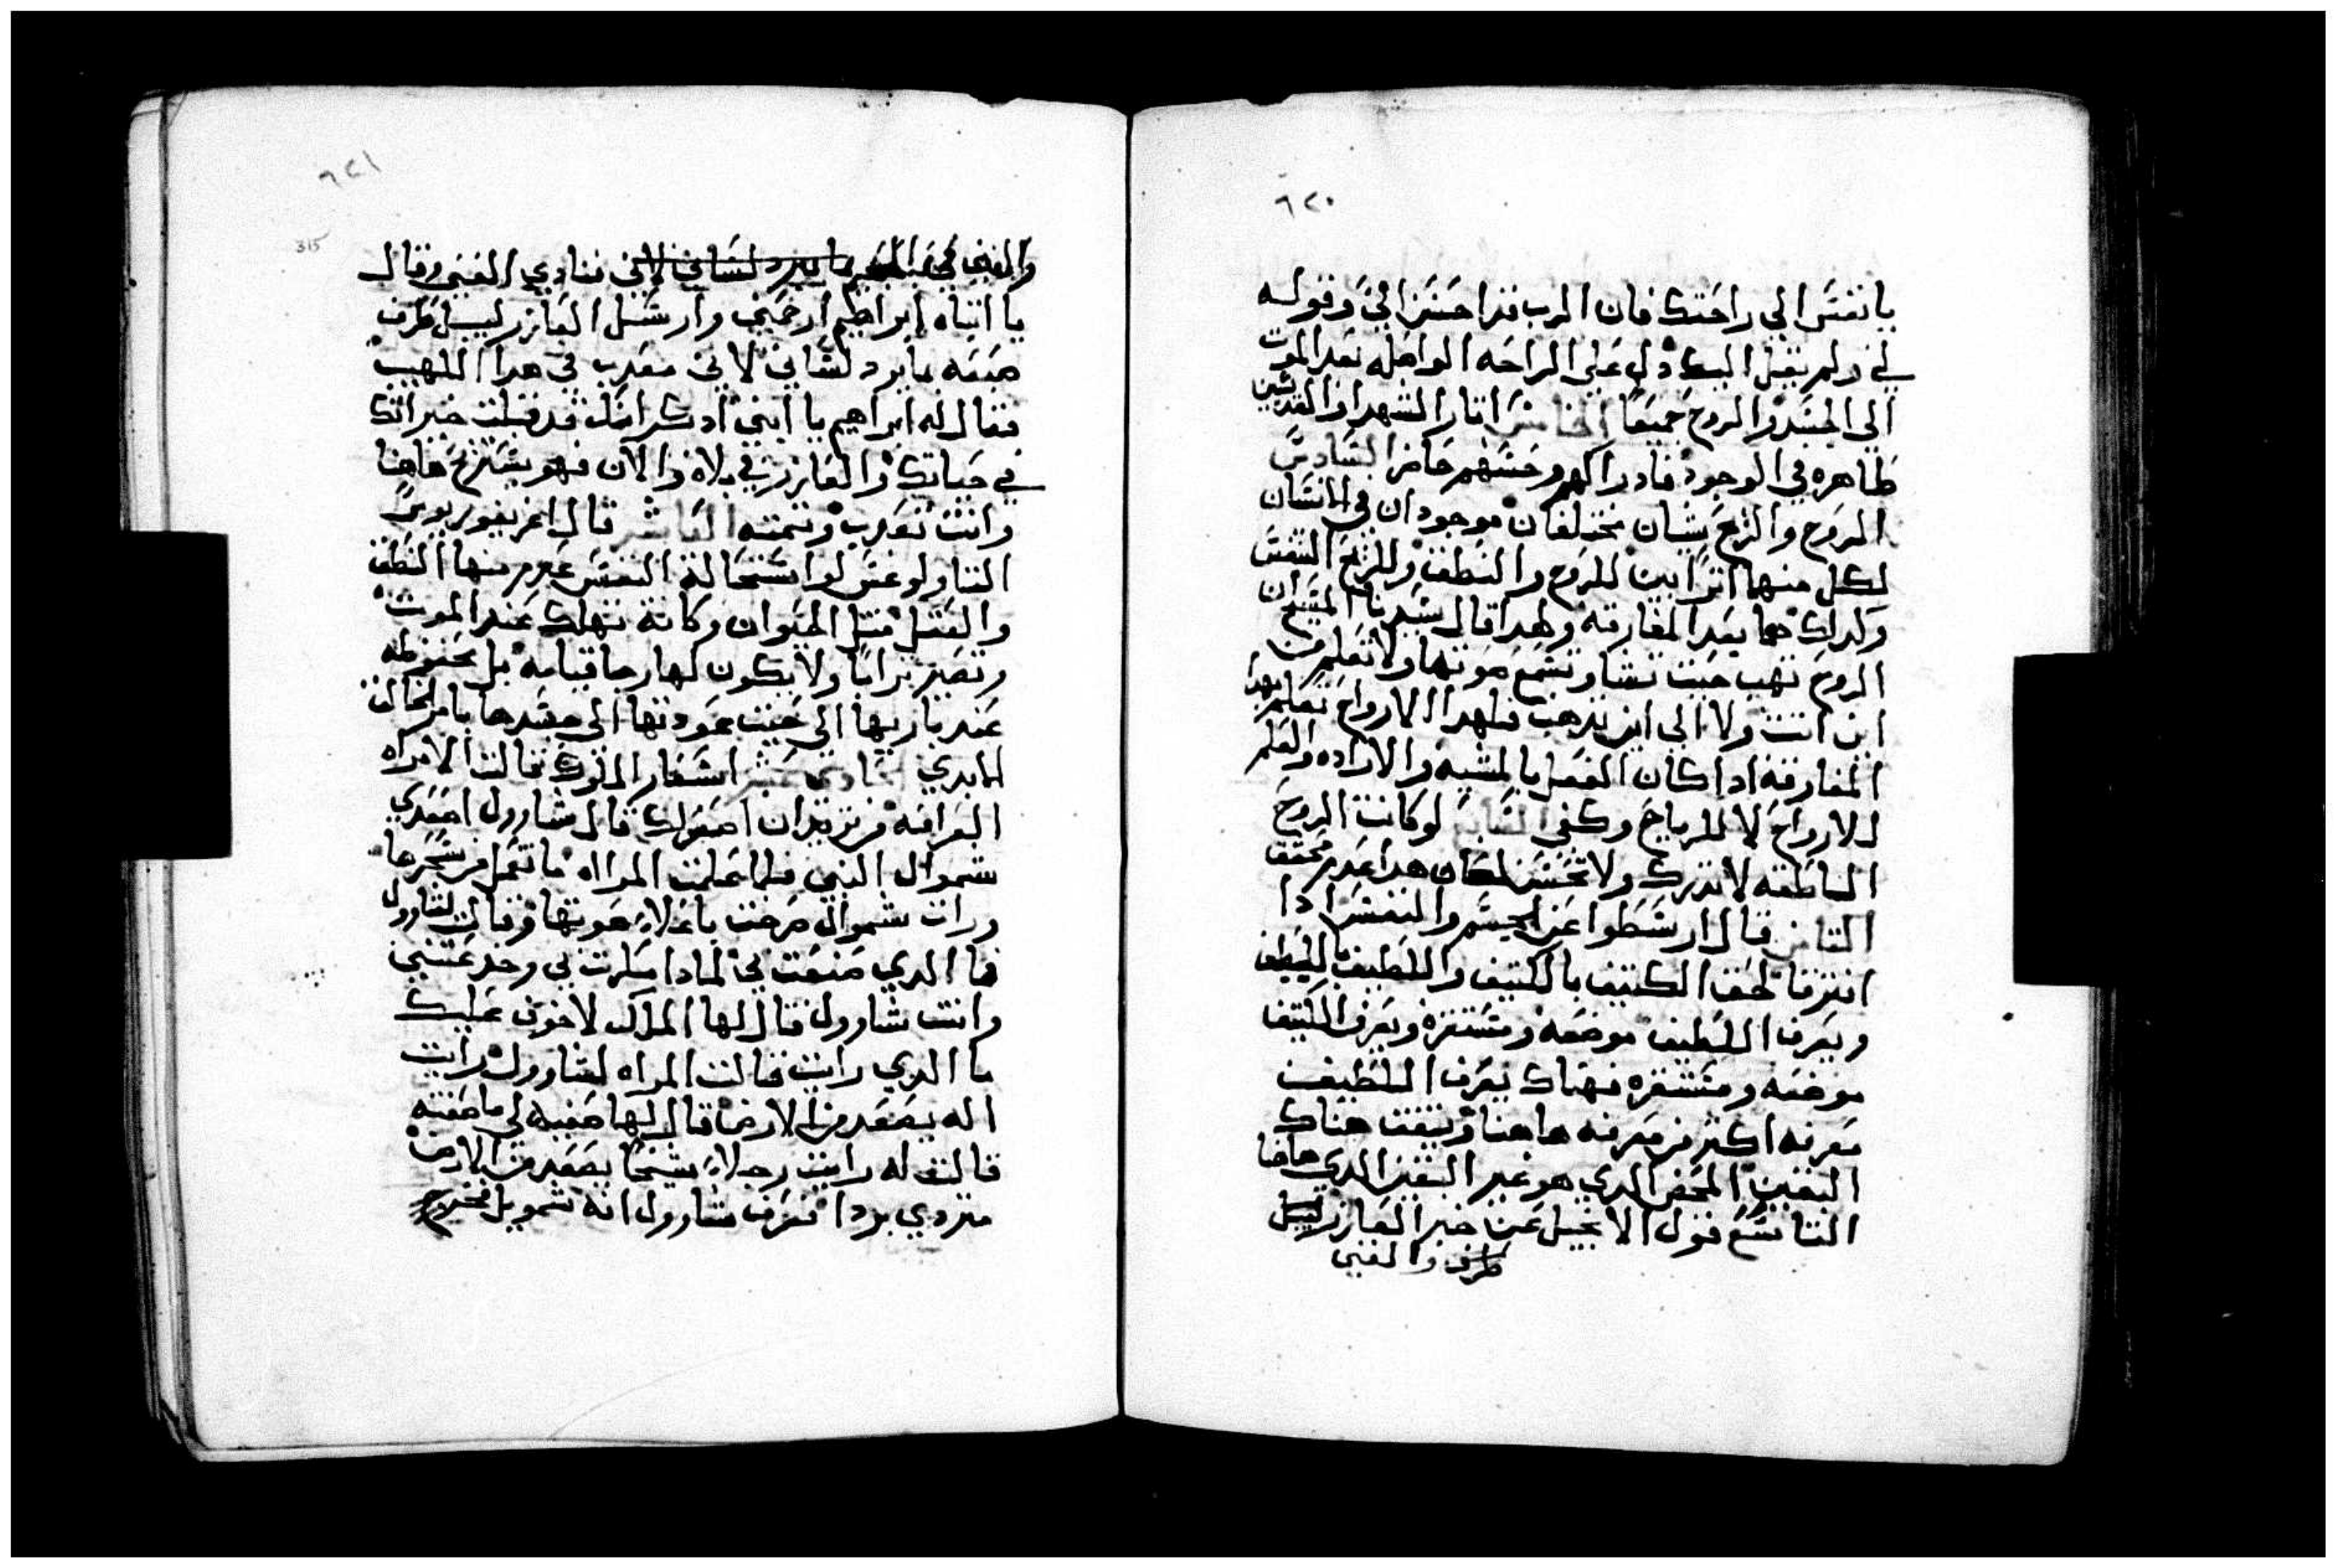 ٦٢٠
يا نفس الي راحتك فان الرب قد احسن الي وقوله
لي ولم يقبل اليك دل علي الراحه الواصله بعد الموت
الي الجسد والروح جميعا الخامس اتار الشهدا والقديسين
ظاهره في الوجود فادراكهم وحسهم حاضر السادس
الروح والريح شيان مختلفان موجودان في الانسان
لكل منهما اثرا بين للروح والنطق وللريح التنفس
وكدلك هما بعد المفارقه ولهدا قال سيدنا المسيح ان
الروح تهب حيث تشا وتسمع صوتها ولا تعلم من
اين اتت ولا الي اين تدهب فلهدا الارواح تعلم بهدا
المفارقه ادا كان الفعل بالمشيه والاراده والعلم
للارواح لا للرياح وكفي السابع لو كانت الروح
الناطقه لا تدرك ولا تحس لكان هدا عدم محقق
التامن قال ارسطوا عن الجسم والنفس ادا
افترقا لحق الكتيف بالكتيف واللطيف باللطيف
ويعرف اللطيف موضعه ومستقره ويعرف الكتيف
موضعه ومستقره فهناك يعرف اللطيف
معرفه اكتر من معرفه هاهنا ويتفت هناك
اليقين المحض الدي هو غير اليقين الدي هاهنا
التاسع قول الانجيل عن خبر العازر ليسل
طرف والغني
٦٢١
315
والغني في الجحيم ما يبرد لساني لاني فنادي الغني وقال
يا ابتاه ابراهيم ارحمني وارسل العازر ليبل طرف
صبعه بما يرد لساني لاني معدب في هدا اللهيب
فقال له ابراهيم يا ابني ادكر انك قد قبلت خيراتك
في حياتك والعازر في بلاه والان فهو يستريح هاهنا
وانت تعدب وتتمته العاشر قال اغريغوريوس
التاولوغس لو استحالة النفس عدم منها النطق
والعقل متل الحيوان وكانة تهلك عند الموت
وتصير ترابا ولا يكون لها رجا قيامه بل محفوظه
عند باريها الي حيث عودتها الي جسدها بامر الخالق
الابدي الحادي عشر اسفار الملوك قالت الامراه
العرافه من تريد ان اصعد لك قال شاوول اصعدي
شموال النبي فلما علمت المراه ما تعمل من سحرها
ورات شموال صرخت باعلاء صوتها وقالت لشاوول
ما الدي صنعت بي لمادا مكرت بي وخدعتني
وانت شاوول قال لها الملك لا خوف عليك
ما الدي رايت قالت المراه لشاوول رايت
اله يصعد من الارض قال لها صفيه لي ما صفته
قالت له رايت رجلاء شيخا يصعد من الارض
متردي بردا فعرف شاوول انه شمويل فخر